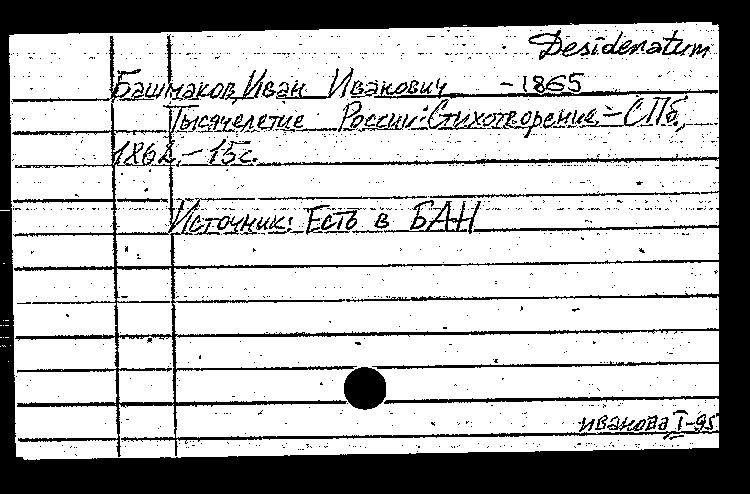 Desideratum
Башмаков, Иван Иванович -1865
Тысячелетие России: Стихотворение. - СПб.,
1862. - 15с.
Источник: Есть в БАН
иванова I-95